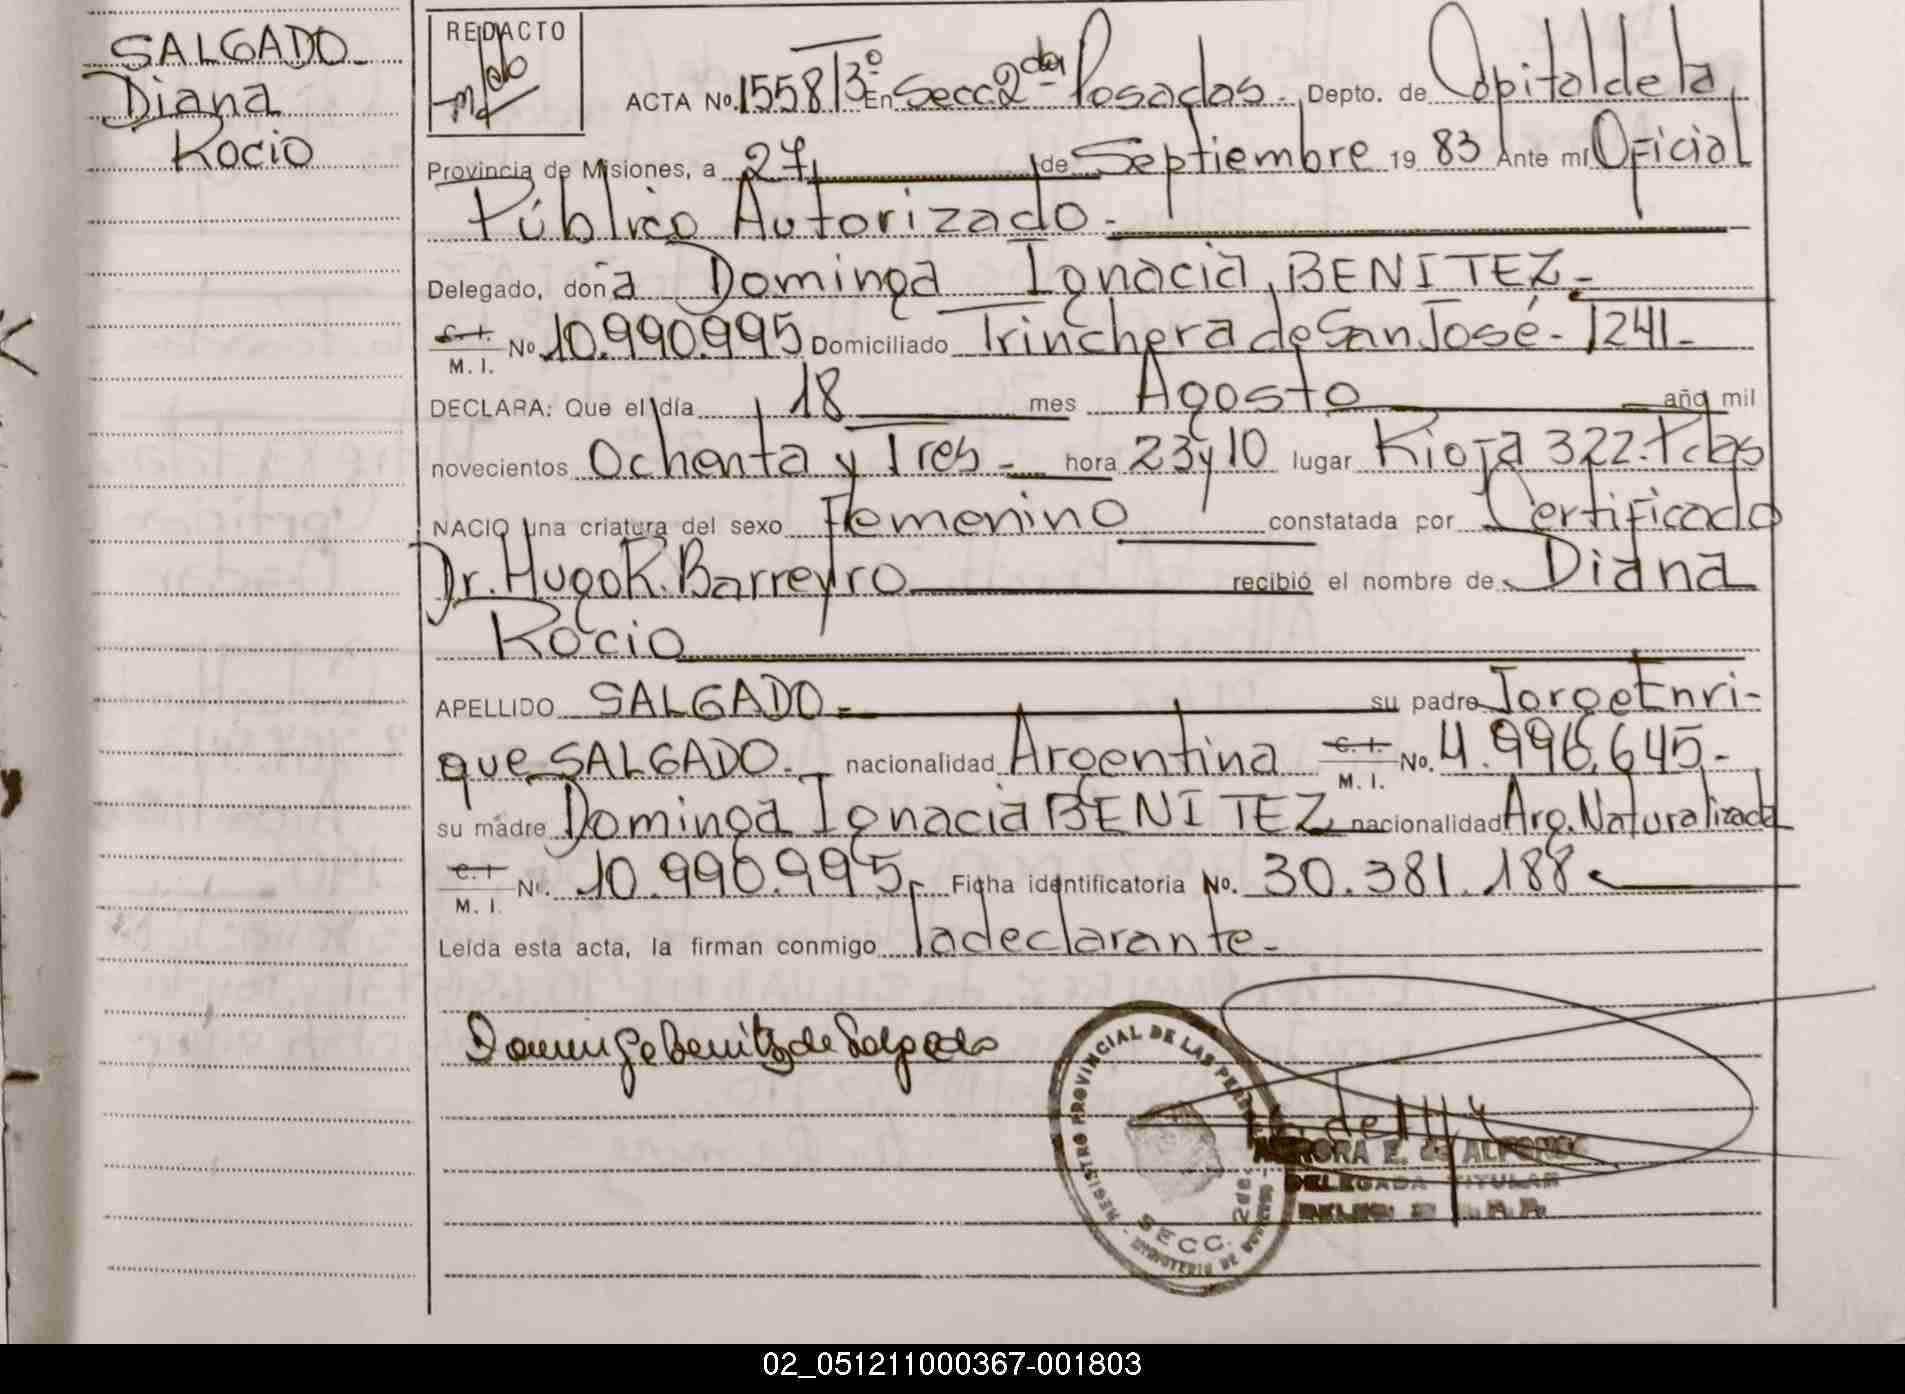 SALGADO
Diana
Rocio
REDACTO
ACTA No. 1558 T3º En Secc. 2da Posadas. Depto. de Capital de la
Provincia de Misiones, a 27 de Septiembre 19 83 Ante mí Oficial
Público Autorizado.
Delegado, doña Dominga Ignacia BENITEZ.
C.I. M. I. No 10.990.995 Domiciliado Trinchera de San José - 1241 -
DECLARA: Que el día 18 mes Agosto año mil
novecientos Ochenta y Tres - hora 23 y 10 lugar Rioja 322. Pdas
NACIO una criatura del sexo Femenino constatada por Certificado
Dr. Hugo R. Barreyro recibió el nombre de Diana
Rocio
APELLIDO SALGADO - su padre Jorge Enri-
que SALGADO. nacionalidad Argentina C.I. M. I. No. 4.996.645.-
su madre Dominga Ignacia BENITEZ nacionalidad Arg. Naturalizada
C.I M. I. No. 10.990.995 Ficha identificatoria No. 30.381.188
Leída esta acta, la firman conmigo la declarante -
Dominga Benitez de Salgado
REGISTRO PROVINCIAL DE LAS PERSONAS
SECC. 2da.
MINISTERIO DE GOBIERNO
AURORA E. de ALFONSO
DELEGADA TITULAR
02_051211000367-001803